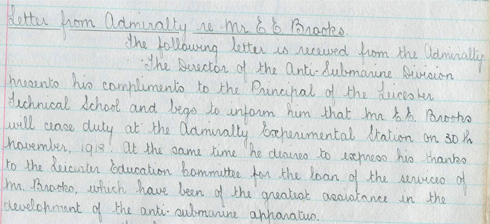 Letter from Admiralty re Mr E E Brooks.
The following letter is received from the Admiralty
The Director of the Anti-Submarine Division
presents his compliments to the Principal of the Leicester
Technical School and begs to inform him that Mr E.E. Brooks
will cease duty at the Admiralty Experimental Station on 30th
November, 1918. At the same time he desires to express his thanks
to the Leicester Education Committee for the loan of the services of
Mr. Brooks, which have been of the greatest assistance in the
development of the anti-submarine apparatus.